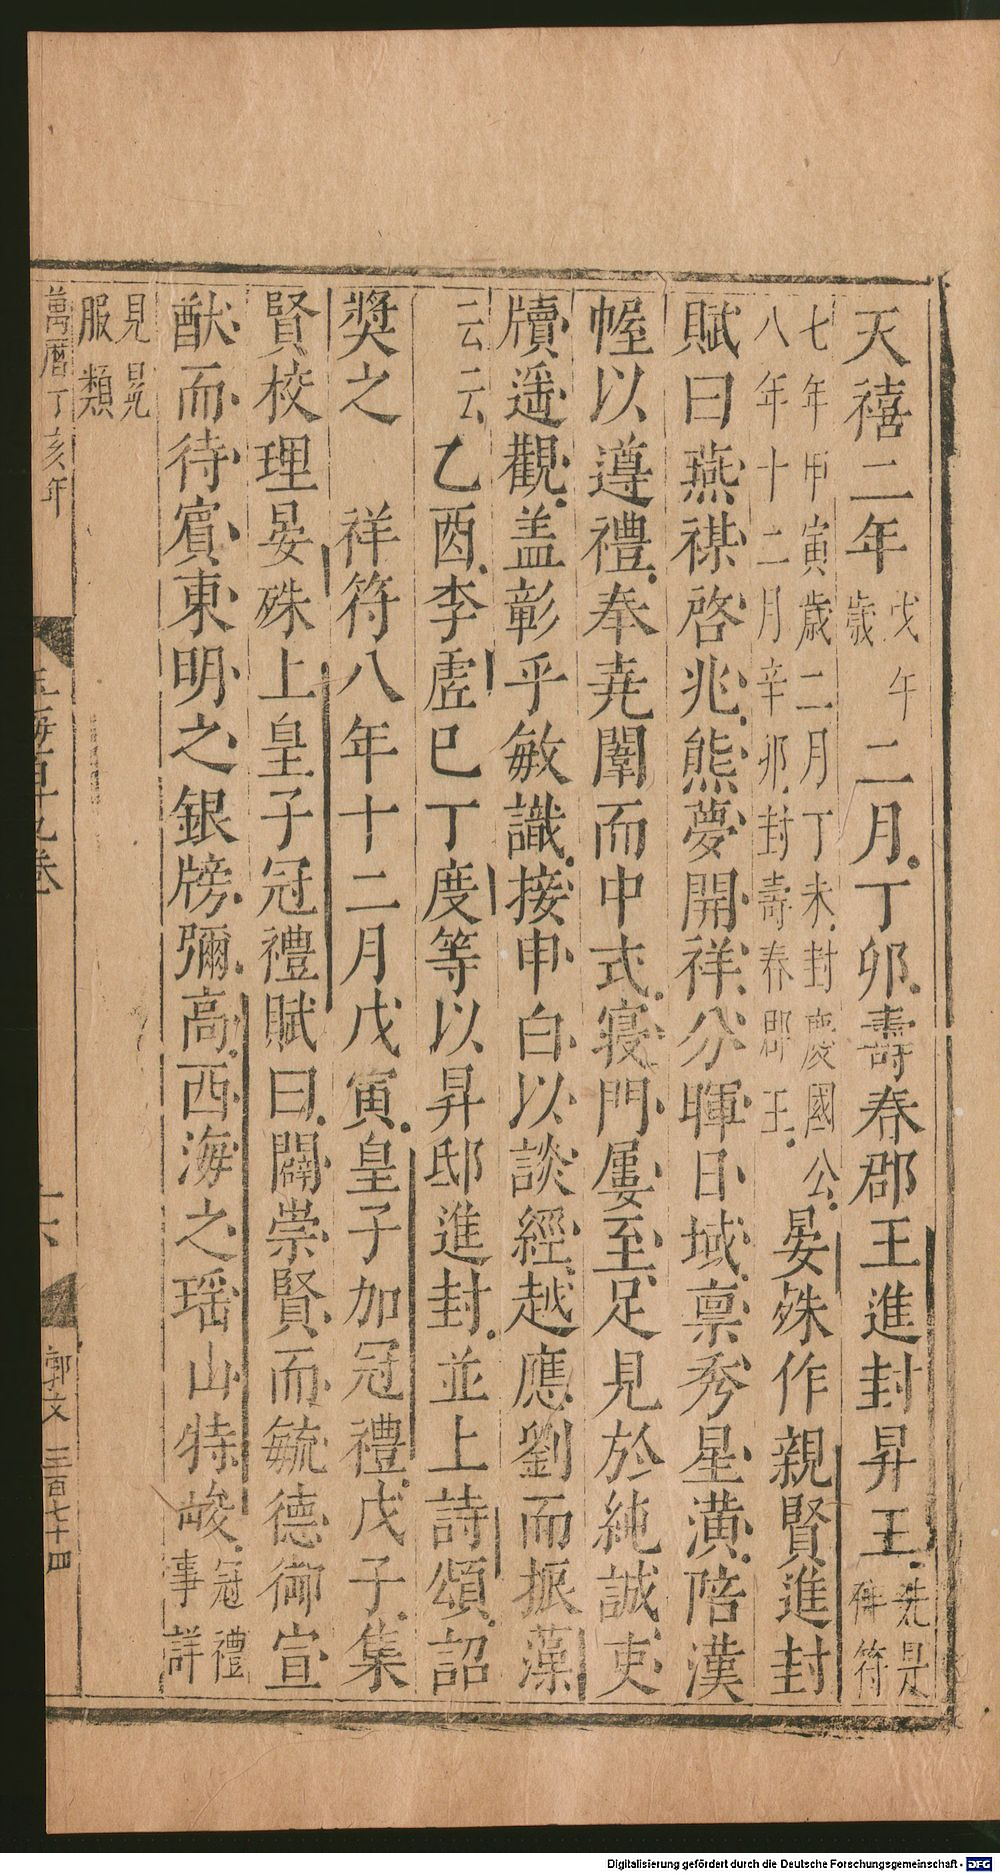 天禧二年戊午歲二月丁卯壽春郡王進封昇王先是祥符
七年甲寅歲二月丁未封慶國公
八年十二月辛卯封壽春郡王晏殊作親賢進封
賦曰燕禖啓兆熊夢開祥分暉日域禀秀星潢陪漢
幄以遵禮奉堯闈而中式寝門屢至足見於純誠吏
牘遥觀盖彰乎敏識接申白以談經越應劉而振藻
云云乙酉李虚已丁度等以昇邸進封並上詩頌詔
奬之　祥符八年十二月戊寅皇子加冠禮戊子集
賢校理晏殊上皇子冠禮賦曰闢崇賢而毓德御宣
猷而待賓東明之銀牓彌高西海之瑶山特峻冠禮事詳
見冕
服類
萬曆丁亥年
玉海百十九卷
十六
郭文 三百七十四
Digitalisierung gefördert durch die Deutsche Forschungsgemeinschaft - DFG